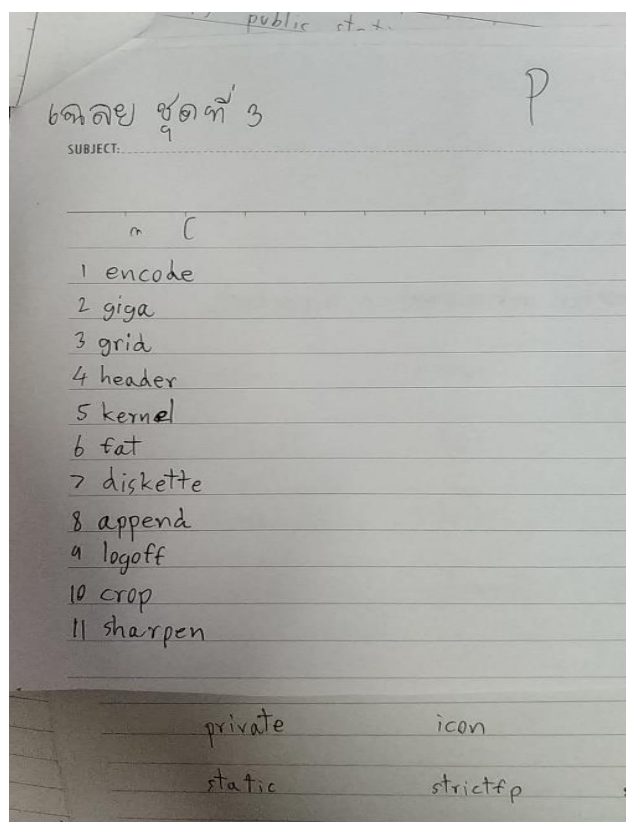 public
เฉลย ชุดที่ 3
P
SUBJECT:
1 encode
2 giga
3 grid
4 header
5 kernel
6 fat
7 diskette
8 append
9 logoff
10 crop
11 sharpen
private icon
static strictfp